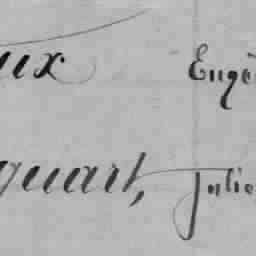 ux Eugè
quart, Julie